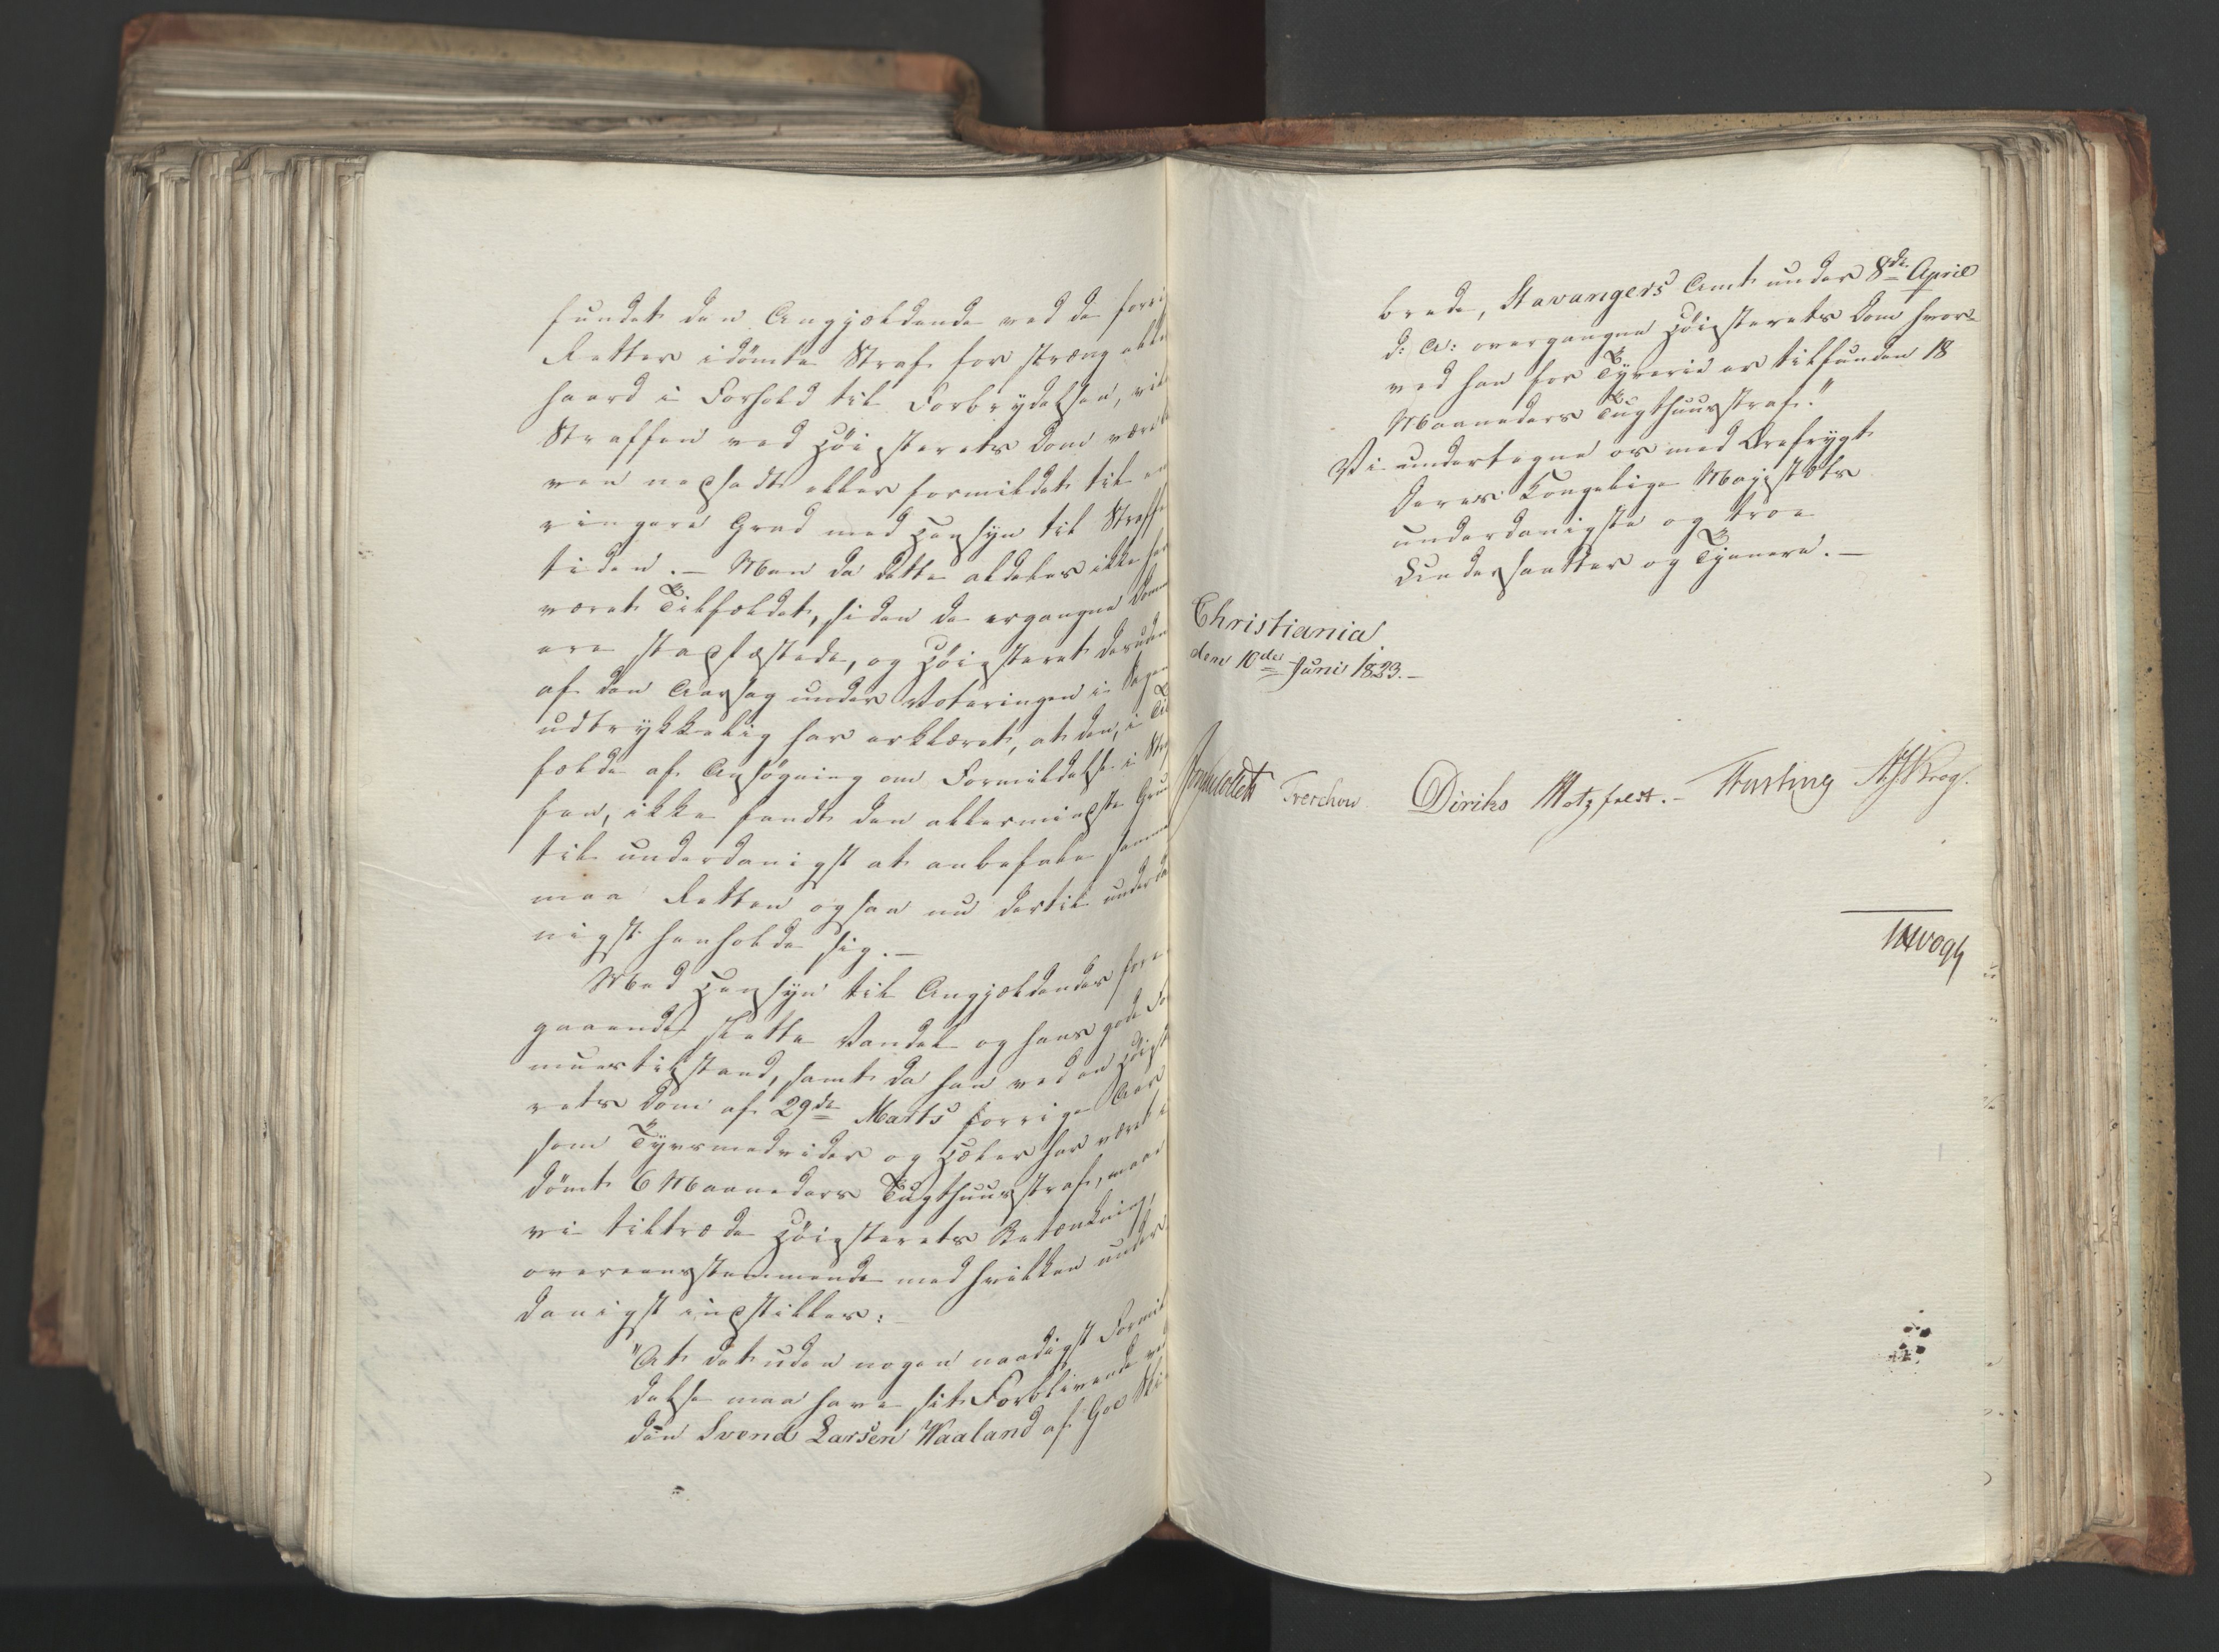 fundet den Angjældende ved de forri
Retter idømte Straf for streng eller
haard i Forhold til Forbrydelsen, vil
Straffen ved Høiesterets Dom være ble
ven nedsadt eller formildet til en
ringere Grad med Hensyn til Straffe
tiden. — Men da dette aldeles ikke har
været Tilfældet, siden de ergangne Domme
ere stadfæstede, og Høiesteret desuden
af den Aarsag under Voteringen i Sagen
udtrykkelig har erklæret, at den, i Til
fælde af Ansøgning om Formildelse i Straf
fen, ikke fandt den allermindste Grund
til underdanigst at anbefale samme
maa Retten ogsaa nu dertil underda
nigst henholde sig. —
Med Hensyn til Angjældendes fore
gaaende slette Vandel og hans gode For
muestilstand, samt da han ved en Høieste
rets Dom af 29de Marts forrige Aar
som Tyvsmedvider og Hæler har været i
dømt 6 Maaneders Tugthuusstraf, maae
vi tiltræde Høiesterets Betænkning,
overeensstemmende med hvilken under
danigst indstilles:
"At det uden nogen naadigst Formil
delse maa have sit Forblivende ved
den Svend Larsen Waaland af Goe Ti
brede, Stavangers Amt under 8de April
d: A: overgangne Høiesterets Dom hvor-
ved han for Tyverie er tilfunden 18
Maaneders Tugthuusstraf."
Vi undertegne os med Ærefrygt
Deres Kongelige Majestæts
underdanigste og troe
Undersaatter og Tjenere. —
Christiania
den 10de Juni 1823. —
Treschow Diriks Motzfeldt. — Fasting Krog.
Vogt